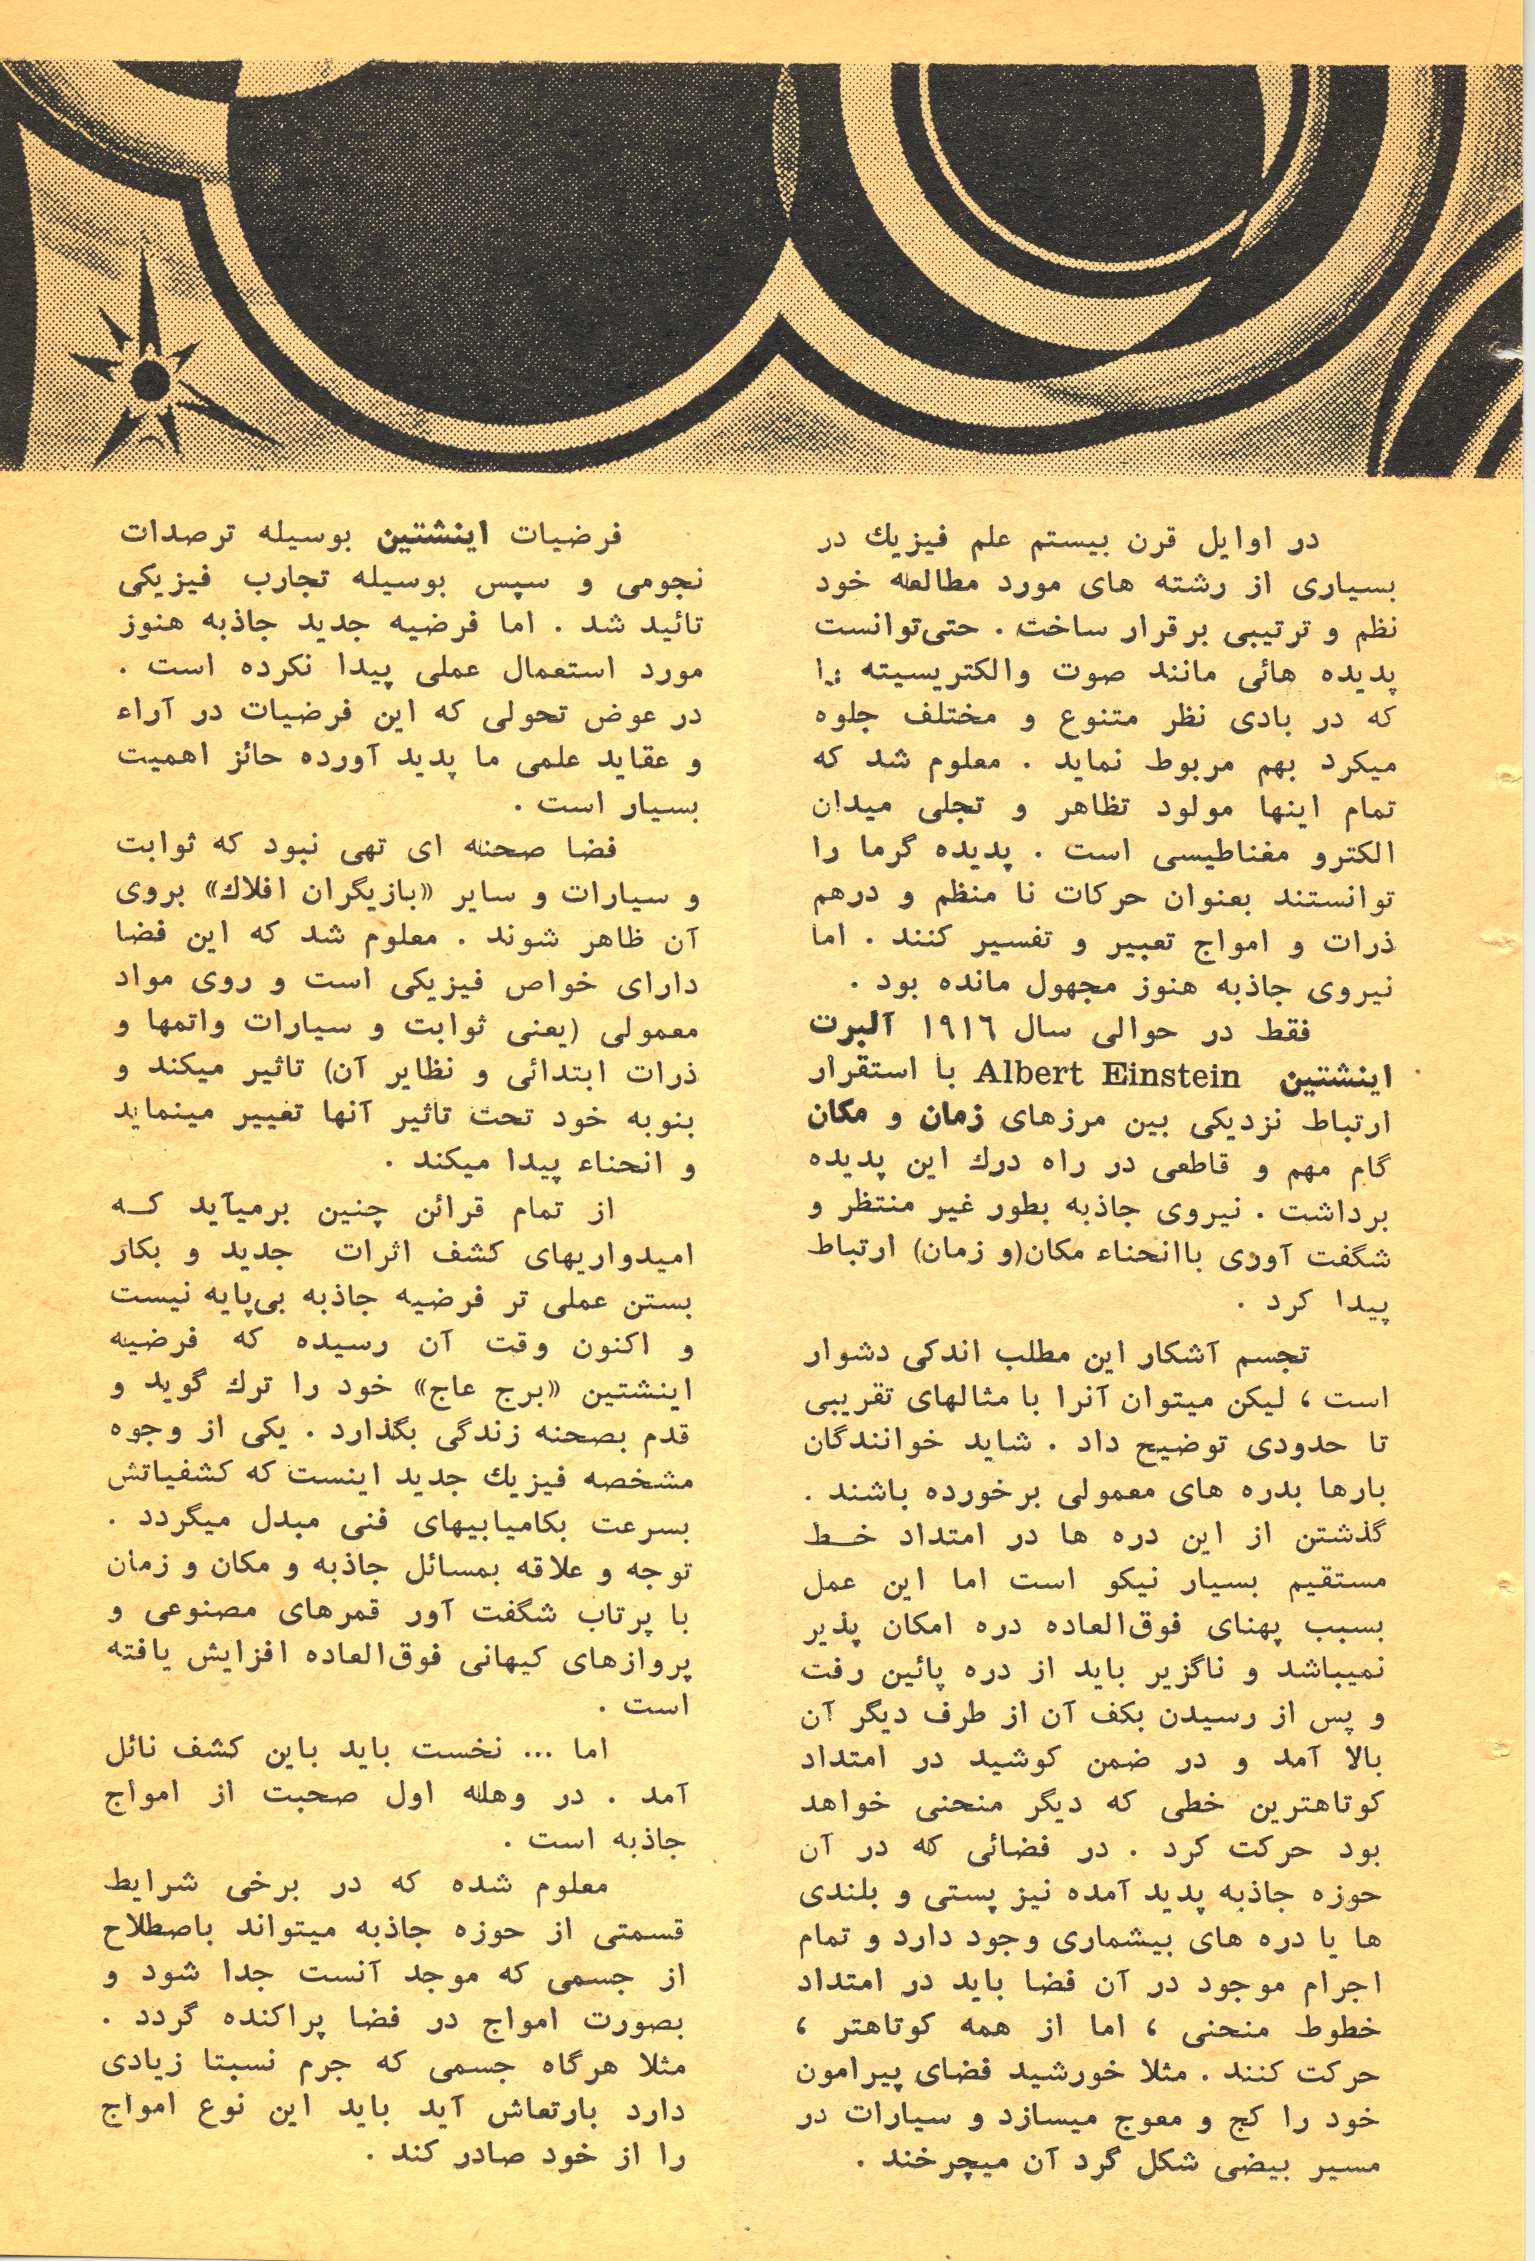 در اوایل قرن بیستم علم فیزیك در
بسیاری از رشته های مورد مطالعه خود
نظم و ترتیبی برقرار ساخت . حتی‌توانست
پدیده هائی مانند صوت والکتریسیته را
که در بادی نظر متنوع و مختلف جلوه
میکرد بهم مربوط نماید . معلوم شد که
تمام اینها مولود تظاهر و تجلی میدان
الکترو مغناطیسی است . پدیده گرما را
توانستند بعنوان حرکات نا منظم و درهم
ذرات و امواج تعبیر و تفسیر کنند . اما
نیروی جاذبه هنوز مجهول مانده بود .
فقط در حوالی سال ۱۹۱٦ آلبرت
اینشتین Albert Einstein با استقرار
ارتباط نزدیکی بین مرزهای زمان و مکان
گام مهم و قاطعی در راه درك این پدیده
برداشت . نیروی جاذبه بطور غیر منتظر و
شگفت آوری باانحناء مکان(و زمان) ارتباط
پیدا کرد .
تجسم آشکار این مطلب اندکی دشوار
است ، لیکن میتوان آنرا با مثالهای تقریبی
تا حدودی توضیح داد . شاید خوانندگان
بارها بدره های معمولی برخورده باشند .
گذشتن از این دره ها در امتداد خـط
مستقیم بسیار نیکو است اما این عمل
بسبب پهنای فوق‌العاده دره امکان پذیر
نمیباشد و ناگزیر باید از دره پائین رفت
و پس از رسیدن بکف آن از طرف دیگر آن
بالا آمد و در ضمن کوشید در امتداد
کوتاهترین خطی که دیگر منحنی خواهد
بود حرکت کرد . در فضائی که در آن
حوزه جاذبه پدید آمده نیز پستی و بلندی
ها یا دره های بیشماری وجود دارد و تمام
اجرام موجود در آن فضا باید در امتداد
خطوط منحنی ، اما از همه کوتاهتر ،
حرکت کنند . مثلا خورشید فضای پیرامون
خود را کج و معوج میسازد و سیارات در
مسیر بیضی شکل گرد آن میچرخند .
فرضیات اینشتین بوسیله ترصدات
نجومی و سپس بوسیله تجارب فیزیکی
تائید شد . اما فرضیه جدید جاذبه هنوز
مورد استعمال عملی پیدا نکرده است .
در عوض تحولی که این فرضیات در آراء
و عقاید علمی ما پدید آورده حائز اهمیت
بسیار است .
فضا صحنه ای تهی نبود که ثوابت
و سیارات و سایر «بازیگران افلاك» بروی
آن ظاهر شوند . معلوم شد که این فضا
دارای خواص فیزیکی است و روی مواد
معمولی (یعنی ثوابت و سیارات واتمها و
ذرات ابتدائی و نظایر آن) تاثیر میکند و
بنوبه خود تحت تاثیر آنها تغییر مینماید
و انحناء پیدا میکند .
از تمام قرائن چنین برمیآید کـه
امیدواریهای کشف اثرات جدید و بکار
بستن عملی تر فرضیه جاذبه بی‌پایه نیست
و اکنون وقت آن رسیده که فرضیه
اینشتین «برج عاج» خود را ترك گوید و
قدم بصحنه زندگی بگذارد . یکی از وجوه
مشخصه فیزیك جدید اینست که کشفیاتش
بسرعت بکامیابیهای فنی مبدل میگردد .
توجه و علاقه بمسائل جاذبه و مکان و زمان
با پرتاب شگفت آور قمرهای مصنوعی و
پروازهای کیهانی فوق‌العاده افزایش یافته
است .
اما ... نخست باید باین کشف نائل
آمد . در وهله اول صحبت از امواج
جاذبه است .
معلوم شده که در برخی شرایط
قسمتی از حوزه جاذبه میتواند باصطلاح
از جسمی که موجد آنست جدا شود و
بصورت امواج در فضا پراکنده گردد .
مثلا هرگاه جسمی که جرم نسبتا زیادی
دارد بارتعاش آید باید این نوع امواج
را از خود صادر کند .